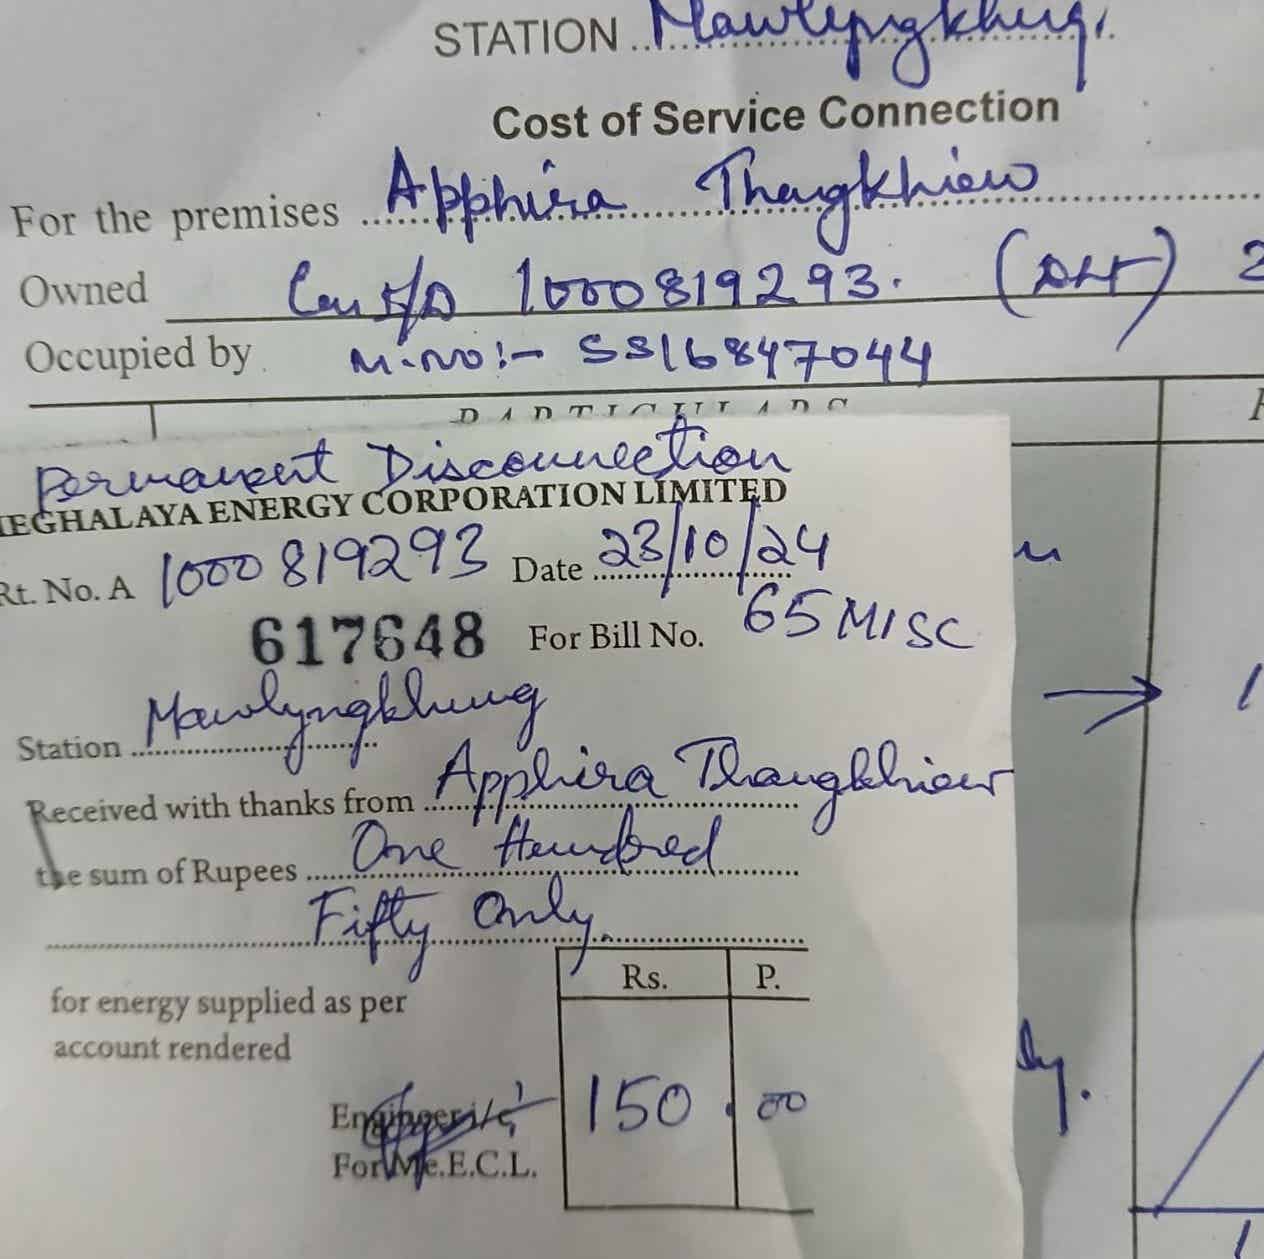 STATION Mawlyngkhung.
Cost of Service Connection
For the premises Apphira Thangkhiew
Owned Cus I/D 1000819293. 2
Occupied by M.NO:- SS16847044
PARTICULARS
Permanent Disconnection
EGHALAYA ENERGY CORPORATION LIMITED
Rt. No. A 1000819293 Date 23/10/24
617648 For Bill No. 65 MISC
Station Mawlyngkhung
Received with thanks from Apphira Thangkhiew
the sum of Rupees One Hundred
Fifty Only.
Rs. P.
for energy supplied as per
account rendered
150.00
Engineer i/c
For Me.E.C.L.